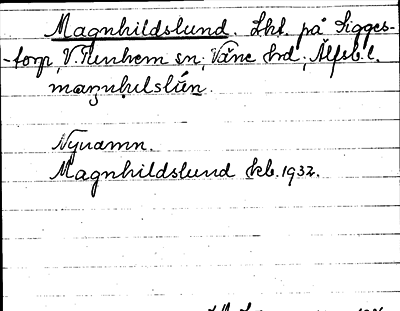 Magnhildslund. Lht. på Sigges-
-torp, V. Tunhem sn; Väne hd; Älfsb. l.
Nynamn.
Magnhildslund kb. 1932.